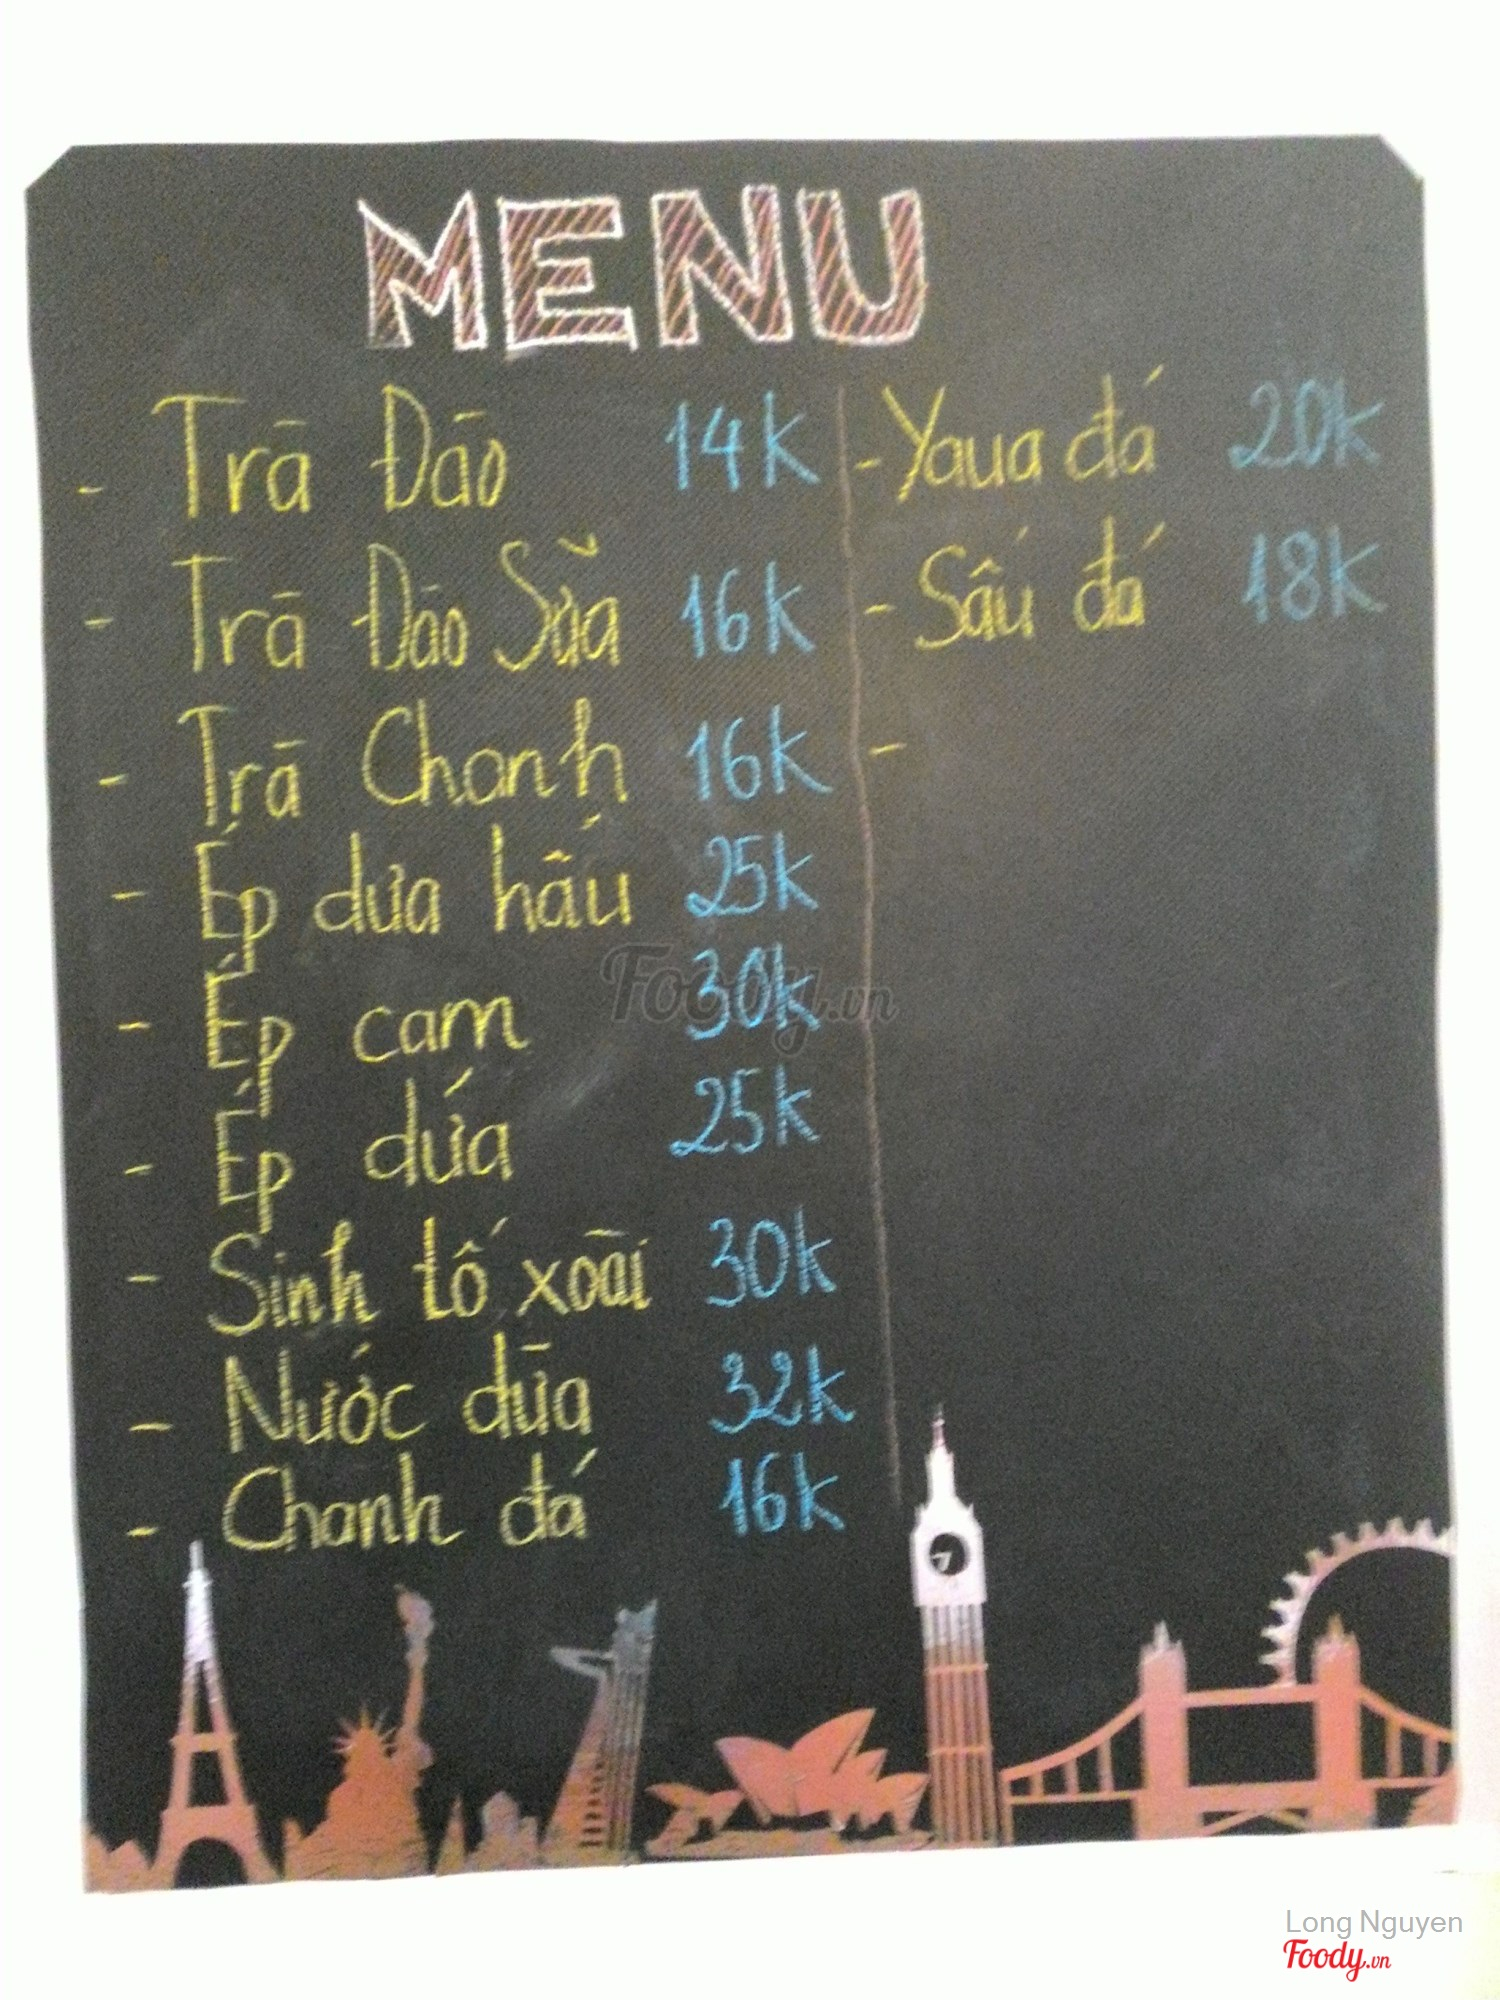 MENU
- Trà Đào 14K
- Trà Đào Sữa 16K
- Trà Chanh 16K
- Ép dưa hấu 25K
- Ép cam 30K
- Ép dứa 25K
- Sinh tố xoài 30K
- Nước dừa 32K
- Chanh đá 16K
- Yaua đá 20K
- Sấu đá 18K
-
Foody.vn
Long Nguyen
Foody.vn